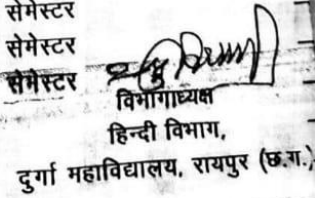 सेमेस्टर
सेमेस्टर
सेमेस्टर
विभागाध्यक्ष
हिन्दी विभाग,
दुर्गा महाविद्यालय, रायपुर (छ.ग.)